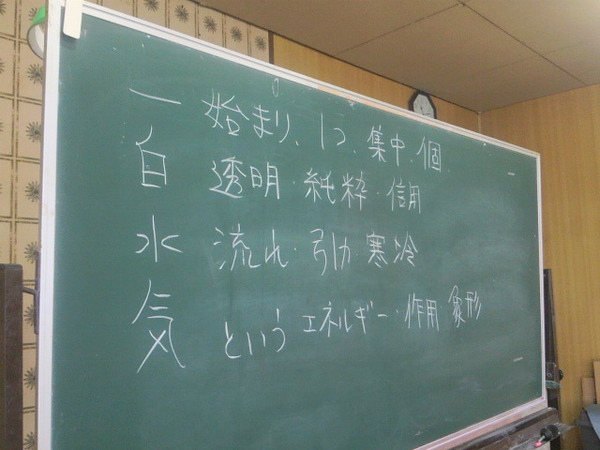 一 始まり、1つ、集中、個
白 透明・純粋・信用
水 流れ・引力 寒冷
気 という エネルギー・作用 象形